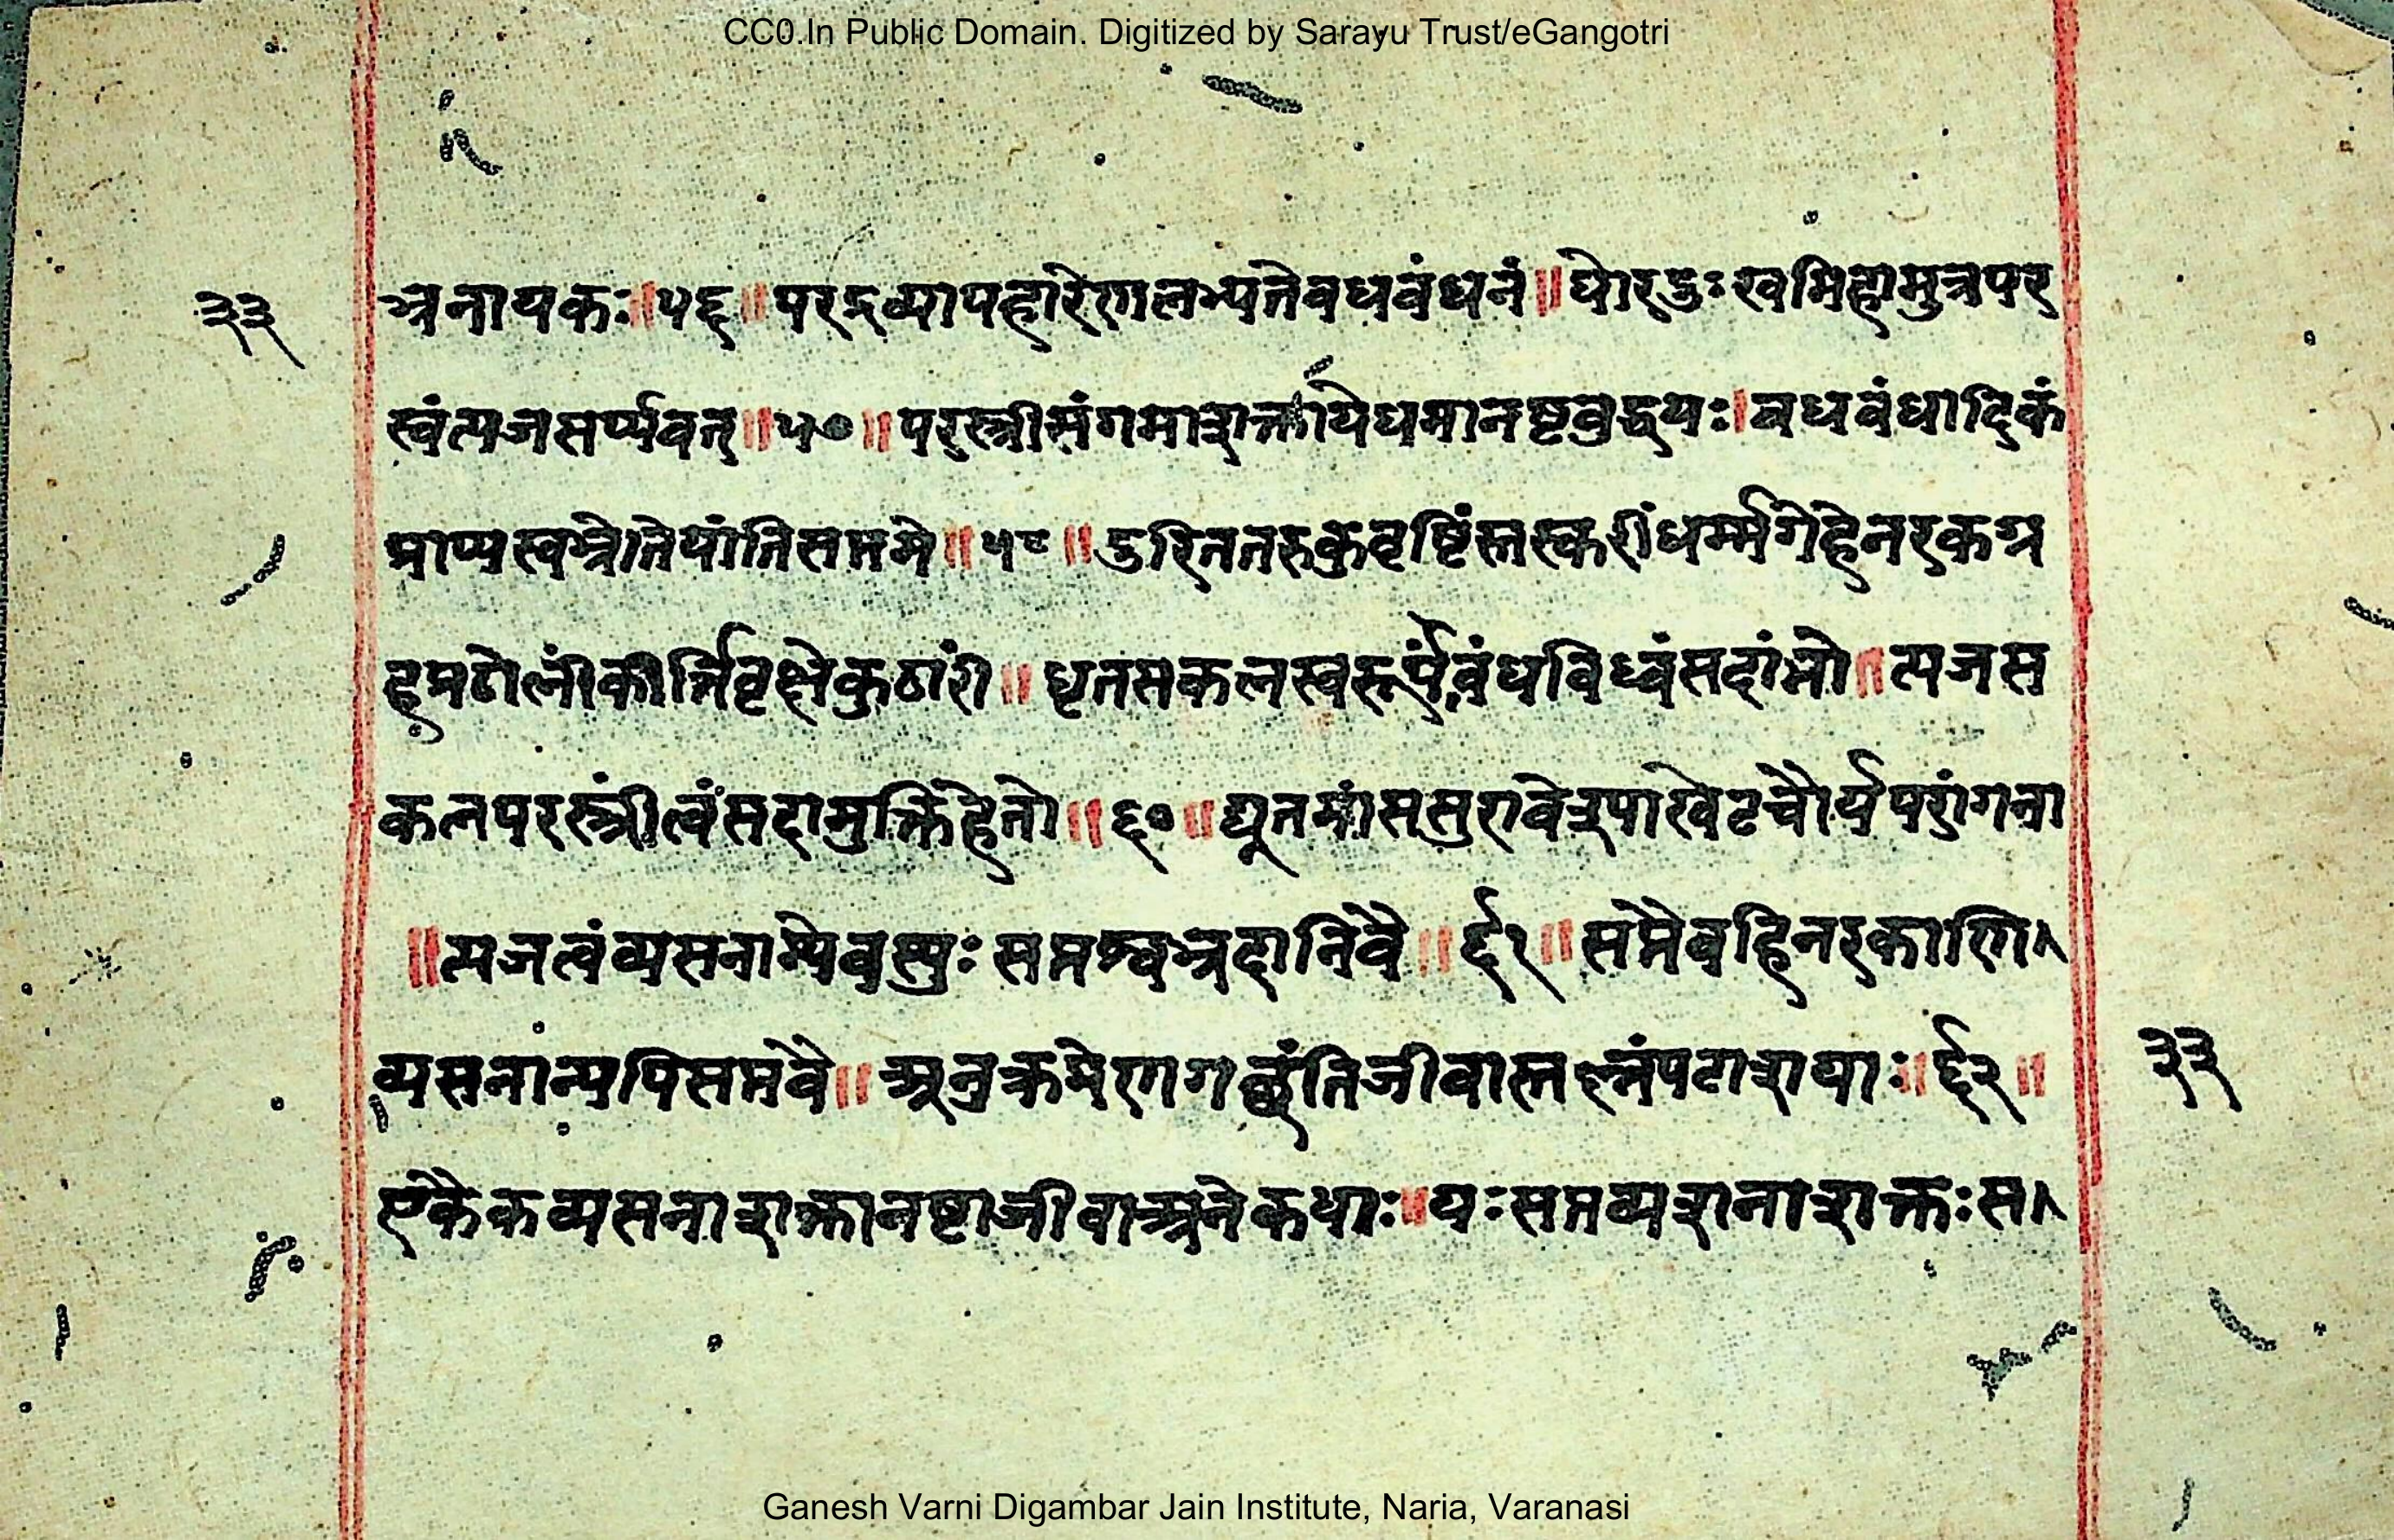 CC0.In Public Domain. Digitized by Sarayu Trust/eGangotri
३३
भ्रनायकः॥५६॥परद्रव्यापहारेणलभ्यतेवधवंधनं॥घोरदुःखमिहामुत्रपर
स्वंत्यजसर्प्पवत्॥५७॥परस्त्रीसंगमाशक्तायेधमानष्टवुद्धयः।वधवंधादिकं
प्राप्यस्वभ्रेतेयांतिसप्तमे॥५८॥दुरिततरुकुवृष्टिंस्तस्करींधर्म्मगेहेनरकग्र
हप्रतोलींकीर्त्तिवृक्षेकुठारीं॥धृतसकलस्वरूपंवंधविध्वंसदांभो॥त्यजस
कलपरस्त्रींत्वंसदामुक्तिहेतो॥६०॥द्यूतमांससुरावेश्पाखेटचौर्यपरांगना
॥त्यजत्वंव्यसनान्येवस्युःसप्तश्वभ्रदानिवै॥६१॥सप्तैवहिनरकाणि
व्यसनान्यपिसप्तवै॥अनुक्रमेणगच्छंतिजीवास्तल्लंपटाशयाः॥६२॥
३३
एकैकव्यसनाशक्तानष्टाजीवाअनेकधाः॥यःसप्तव्यशनाशक्तःस
Ganesh Varni Digambar Jain Institute, Naria, Varanasi